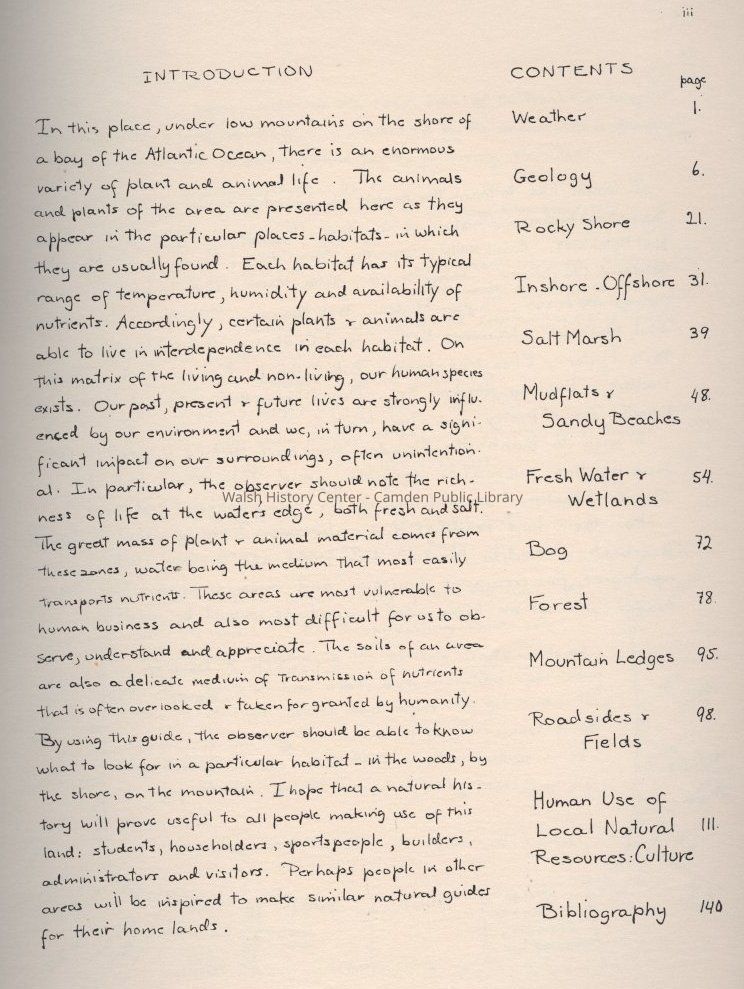 iii
INTRODUCTION
In this place, under low mountains on the shore of
a bay of the Atlantic Ocean, there is an enormous
variety of plant and animal life. The animals
and plants of the area are presented here as they
appear in the particular places-habitats-in which
they are usually found. Each habitat has its typical
range of temperature, humidity and availability of
nutrients. Accordingly, certain plants & animals are
able to live in interdependence in each habitat. On
this matrix of the living and non-living, our human species
exists. Our past, present & future lives are strongly influ-
enced by our environment and we, in turn, have a signi-
ficant impact on our surroundings, often unintention-
al. In particular, the observer should note the rich-
ness of life at the waters edge, both fresh and salt.
The great mass of plant & animal material comes from
these zones, water being the medium that most easily
transports nutrients. These areas are most vulnerable to
human business and also most difficult for us to ob-
serve, understand and appreciate. The soils of an area
are also a delicate medium of transmission of nutrients
that is often overlooked & taken for granted by humanity.
By using this guide, the observer should be able to know
what to look for in a particular habitat - in the woods, by
the shore, on the mountain. I hope that a natural his-
tory will prove useful to all people making use of this
land: students, householders, sportspeople, builders,
administrators and visitors. Perhaps people in other
areas will be inspired to make similar natural guides
for their home lands.
CONTENTS
page
Weather 1.
Geology 6.
Rocky Shore 21.
Inshore-Offshore 31.
Salt Marsh 39
Mudflats & 48.
Sandy Beaches
Fresh Water & 54.
Wetlands
Bog 72
Forest 78.
Mountain Ledges 95.
Roadsides & 98.
Fields
Human Use of
Local Natural 111.
Resources: Culture
Bibliography 140
Walsh History Center - Camden Public Library